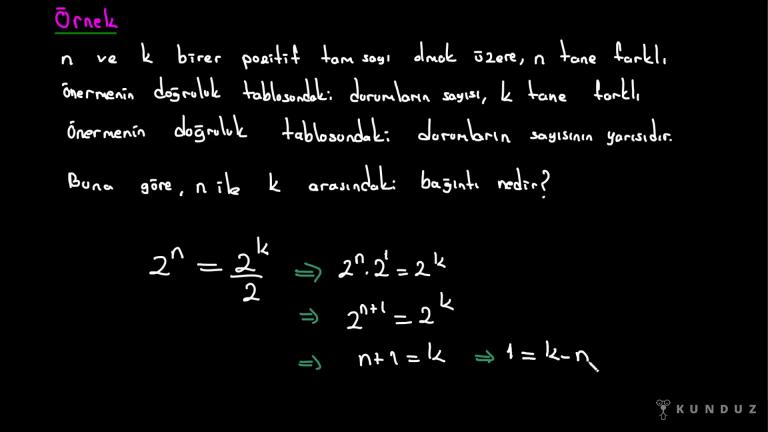 Örnek
n ve k birer pozitif tam sayı olmak üzere, n tane farklı
önermenin doğruluk tablosundaki durumların sayısı, k tane farklı
önermenin doğruluk tablosundaki durumların sayısının yarısıdır.
Buna göre, n ile k arasındaki bağıntı nedir?
2^n = 2^k/2 ⇒ 2^n . 2^1 = 2^k
⇒ 2^{n+1} = 2^k
⇒ n+1 = k ⇒ 1 = k-n
KUNDUZ